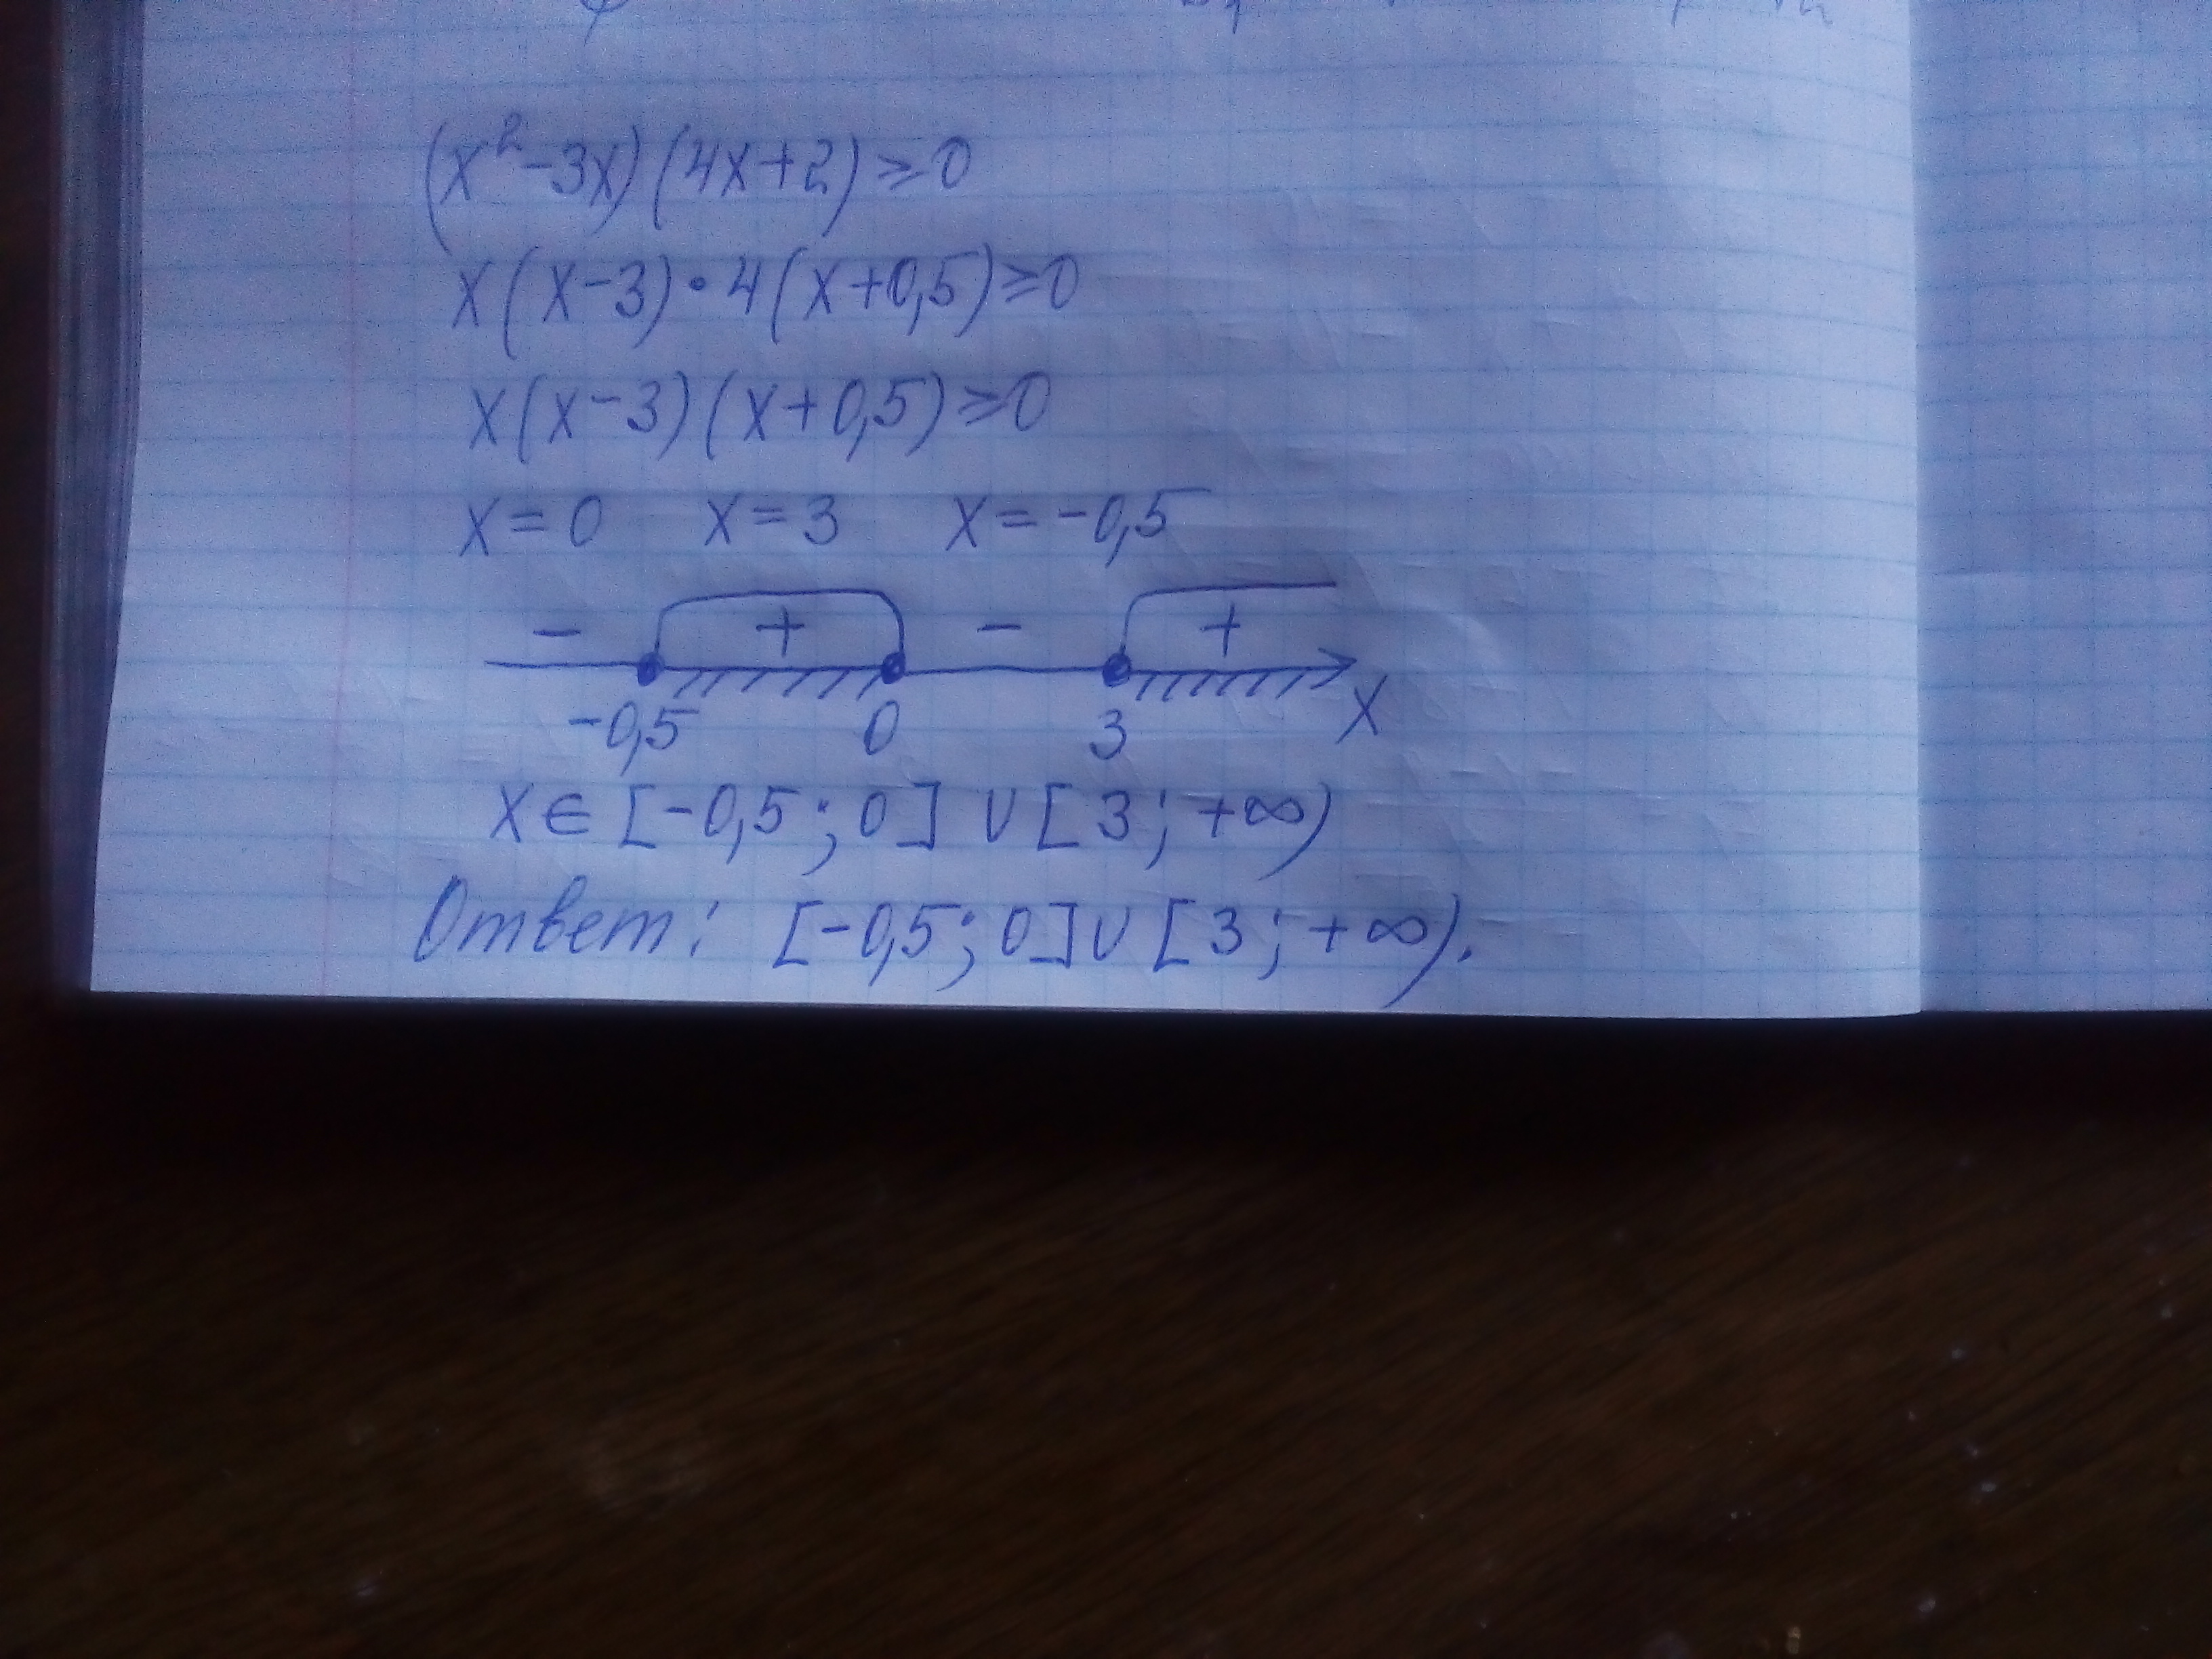 (x²-3x)(4x+2)≥0
x(x-3)•4(x+0,5)≥0
x(x-3)(x+0,5)≥0
x=0 x=3 x=-0,5
- + - +
-0,5 0 3 x
x∈[-0,5;0]∪[3;+∞)
Ответ: [-0,5;0]∪[3;+∞).